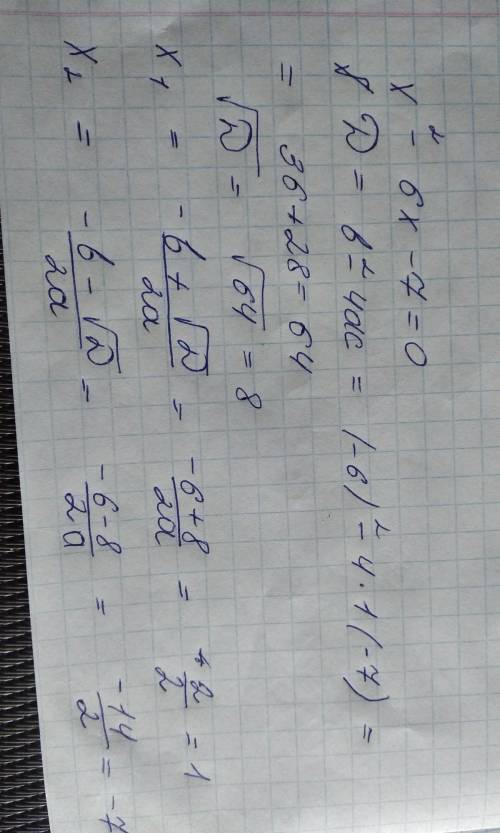 x² - 6x - 7 = 0
D = b² - 4ac = (-6)² - 4 · 1(-7) =
= 36 + 28 = 64
√D = √64 = 8
x₁ = (-b + √D)/2a = (-6 + 8)/2a = +2/2 = 1
x₂ = (-b - √D)/2a = (-6 - 8)/2a = -14/2 = -7